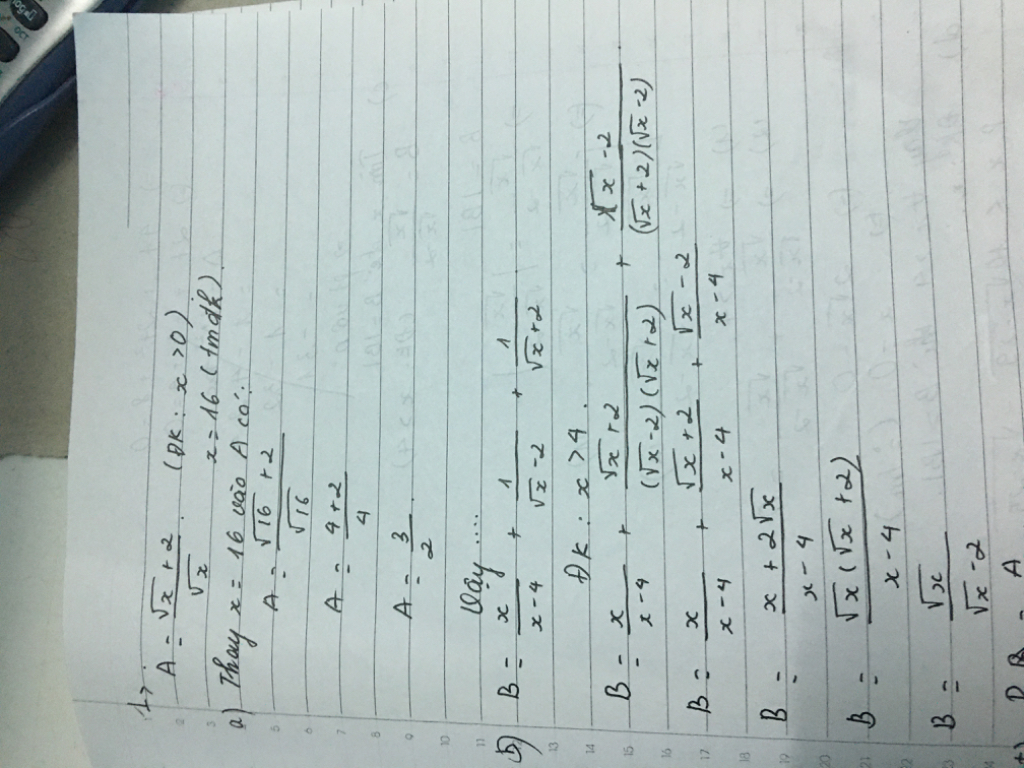 1>
A = (√x + 2)/√x (ĐK: x > 0)
x = 16 (tmđk)
a) Thay x = 16 vào A có:
A = (√16 + 2)/√16
A = (4 + 2)/4
A = 3/2
Vậy ....
b) B = x/(x-4) + 1/(√x-2) + 1/(√x+2)
ĐK: x > 4.
B = x/(x-4) + (√x+2)/((√x-2)(√x+2)) + (√x-2)/((√x+2)(√x-2))
B = x/(x-4) + (√x+2)/(x-4) + (√x-2)/(x-4)
B = (x + 2√x)/(x-4)
B = √x(√x+2)/(x-4)
B = √x/(√x-2)